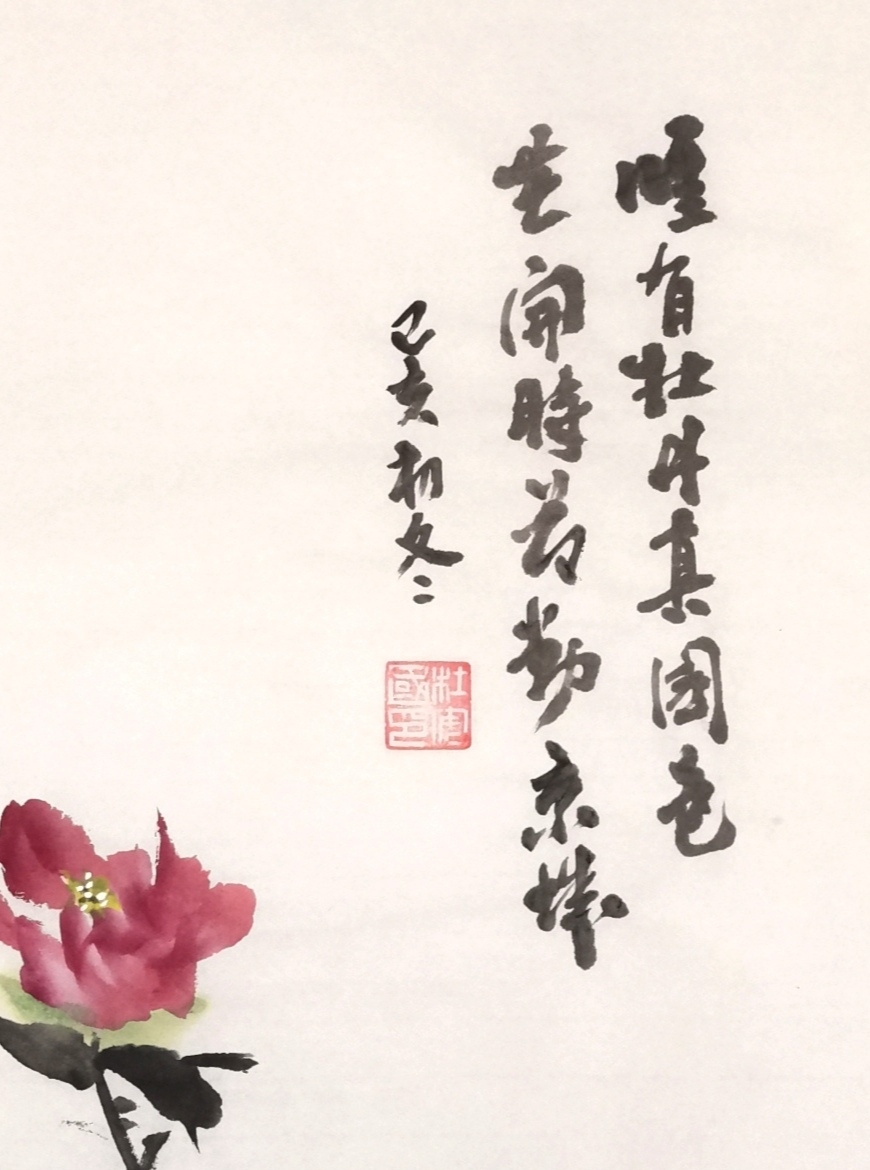 唯有牡丹真国色
花開時節動京城
己亥初冬
杜
國印